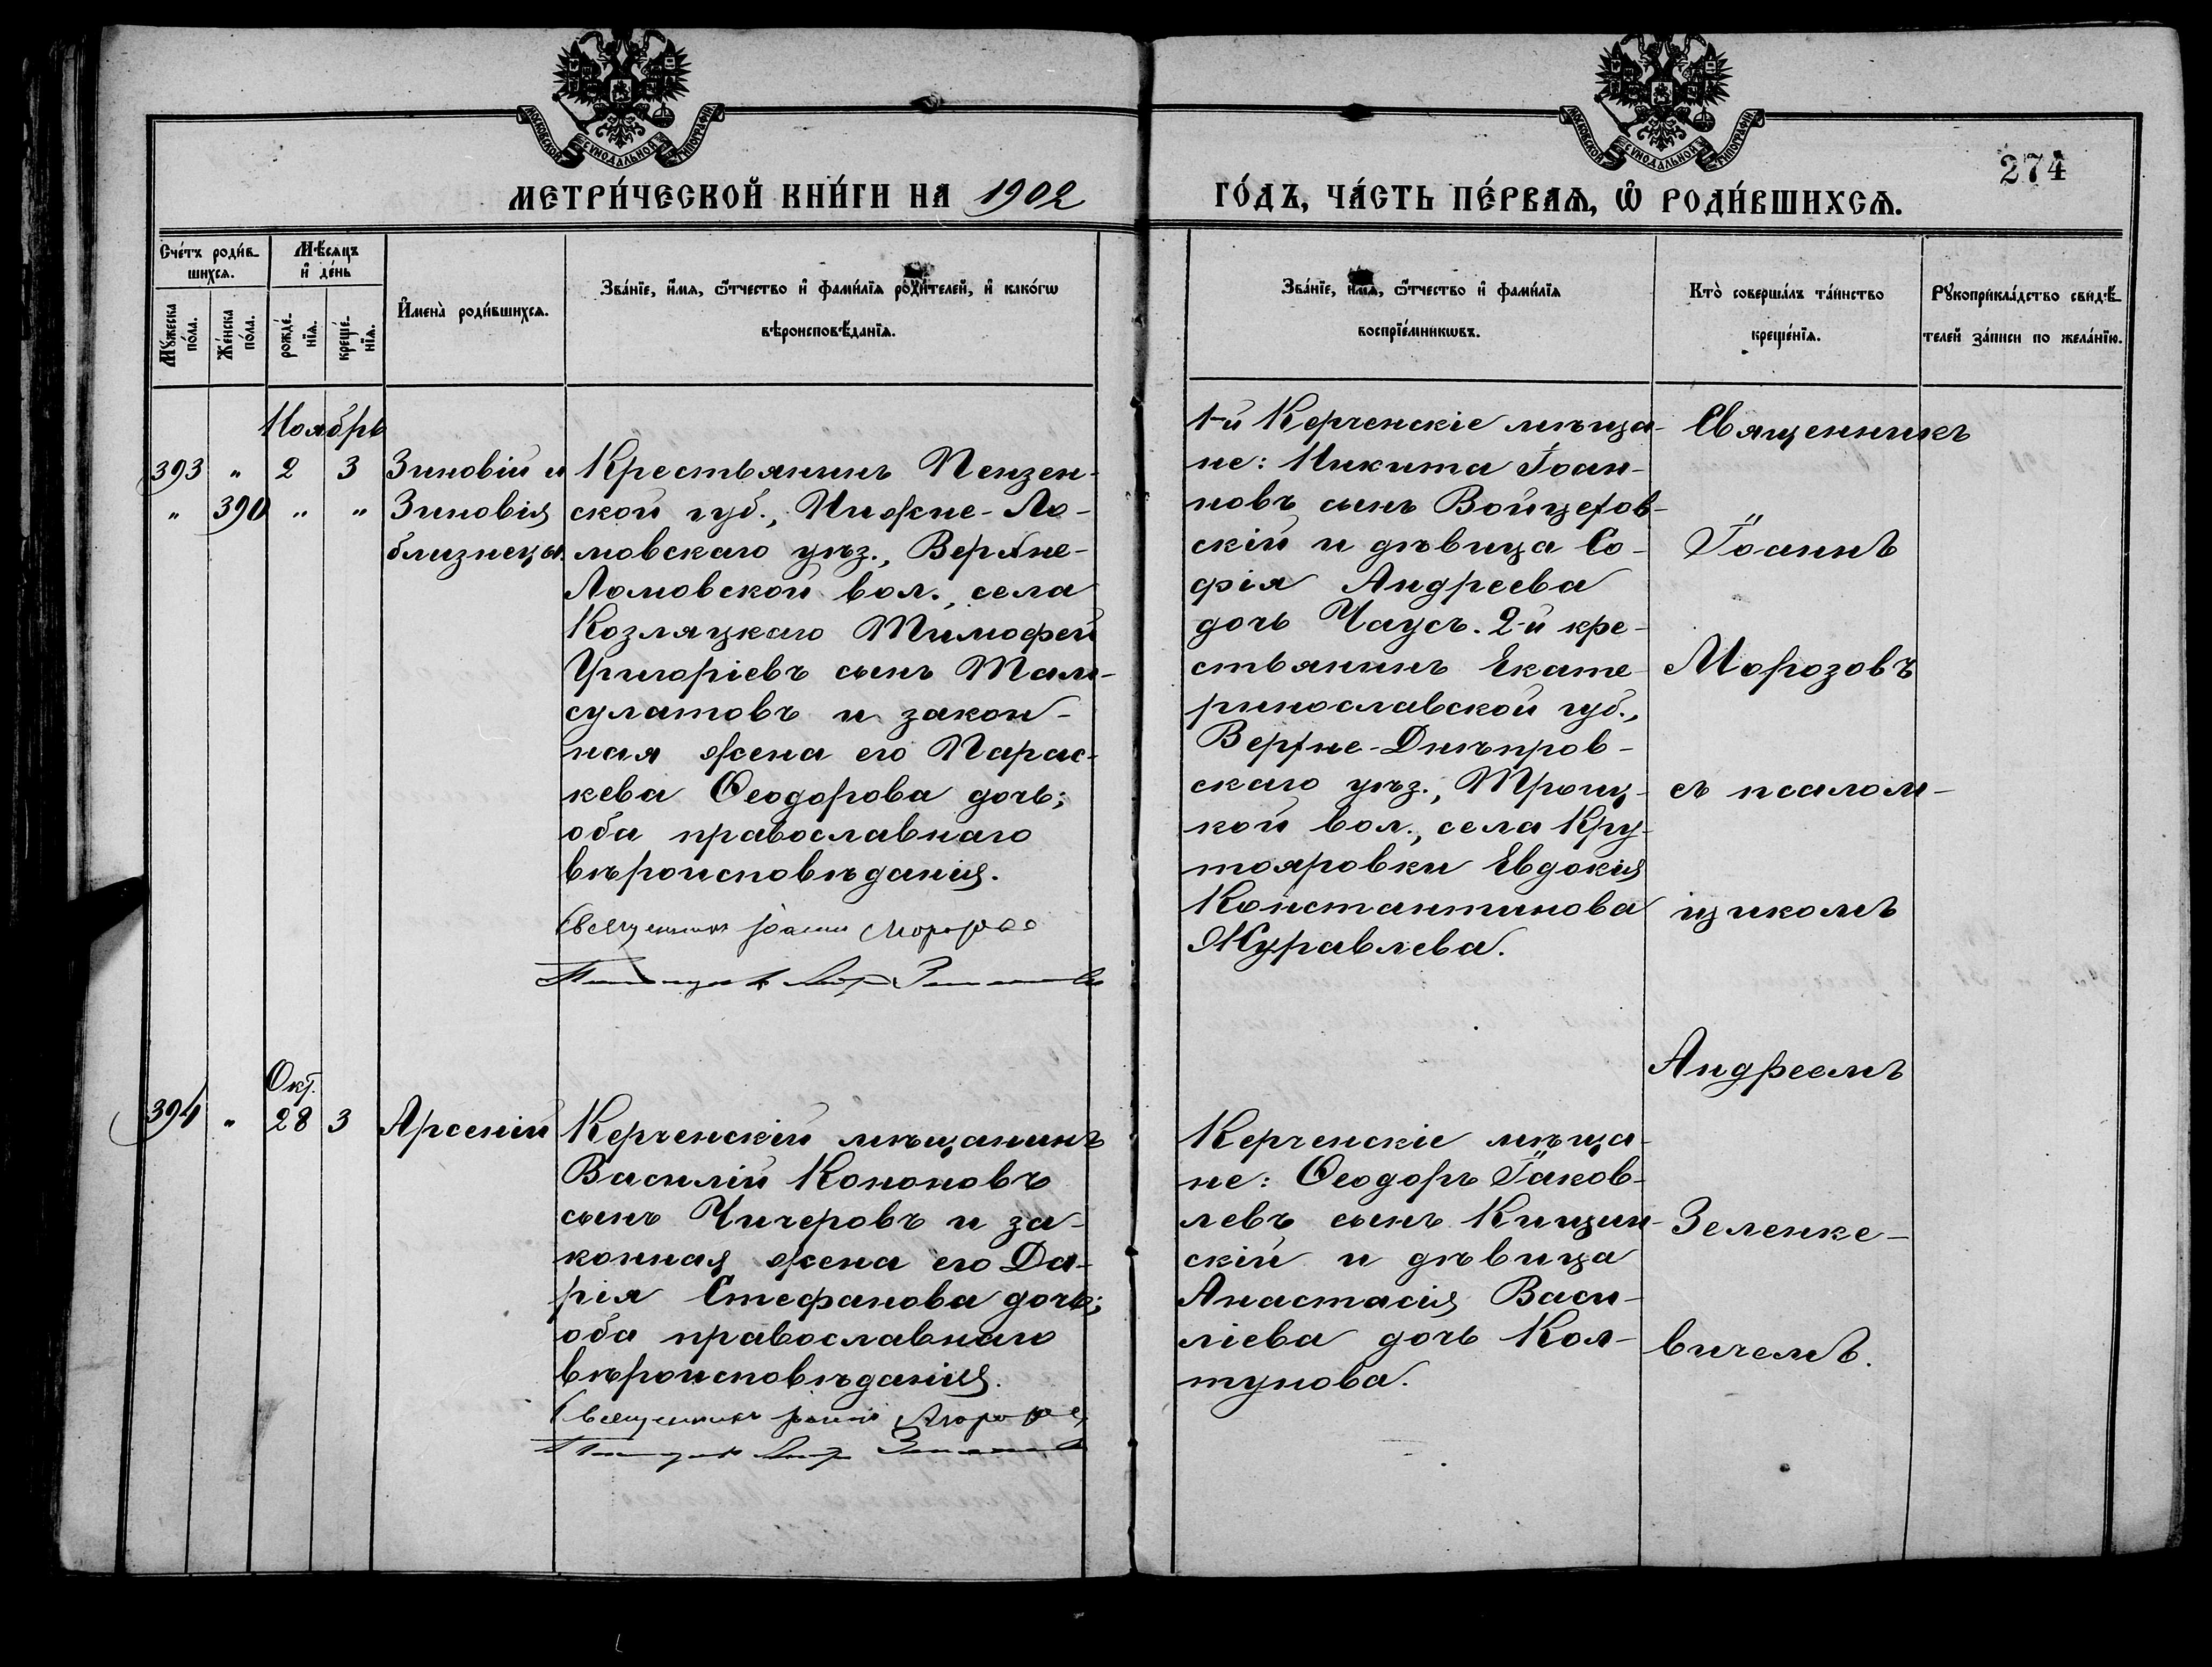 МОСКОВСКОЙ СѴНОДАЛЬНОЙ ТИПОГРАФІИ
МОСКОВСКОЙ СѴНОДАЛЬНОЙ ТИПОГРАФІИ
274
МЕТРИ́ЧЕСКОЙ КНИ́ГИ НА 1902 ГО́ДЪ, ЧА́СТЬ ПЕ́РВАѦ, Ѡ҆ РОДИ́ВШИХСѦ.
Сче́тъ роди́в-
шихсѧ.
Мѣ́сѧцъ
и҆ де́нь
Мꙋ́жеска
по́ла.
Же́нска
по́ла.
рожде́-
нїѧ.
креще́-
нїѧ.
И҆мена̀ роди́вшихсѧ.
Зва́нїе, и҆́мѧ, ѻ҆́тчество и҆ фами́лїѧ роди́телей, и҆ како́гѡ
вѣроисповѣ́данїѧ.
Зва́нїе, и҆́мѧ, ѻ҆́тчество и҆ фами́лїѧ
воспрїе́мникѡвъ.
Кто̀ соверша́лъ та́инство
креще́нїѧ.
Рꙋкоприкла́дство свидѣ́-
телей за́писи по жела́нїю.
Ноябрь
393 " 2 3 Зиновій и
" 390 " " Зиновія
близнецы.
Крестьянинъ Пензен-
ской губ., Нижне-Ло-
мовскаго уѣз., Верхне-
Ломовской вол., села
Козляцкаго Тимофей
Григоріевъ сынъ Мам-
сулатовъ и закон-
ная жена его Парас-
кева Ѳеодорова дочь;
оба православнаго
вѣроисповѣданія.
Священникъ Іоаннъ Морозов
1-й Керченскіе мѣща-
не: Никита Іоан-
новъ сынъ Войцехов-
скій и дѣвица Со-
фія Андреева
дочь Чаусъ. 2-й кре-
стьянинъ Екате-
ринославской губ.,
Верхне-Днѣпров-
скаго уѣз., Троиц-
кой вол., села Кру-
тояровки Евдокія
Константинова
Журавлева.
Священникъ
Іоаннъ
Морозовъ
съ псалом-
щикомъ
Андреемъ
Зеленке-
вичемъ.
Окт.
394 " 28 3 Арсеній
Керченскій мѣщанинъ
Василій Кононовъ
сынъ Чичеровъ и за-
конная жена его Да-
рія Стефанова дочь;
оба православнаго
вѣроисповѣданія.
Священникъ Іоаннъ Морозов
Керченскіе мѣща-
не: Ѳеодоръ Іаков-
левъ сынъ Кицин-
скій и дѣвица
Анастасія Васи-
ліева дочь Кол-
тунова.